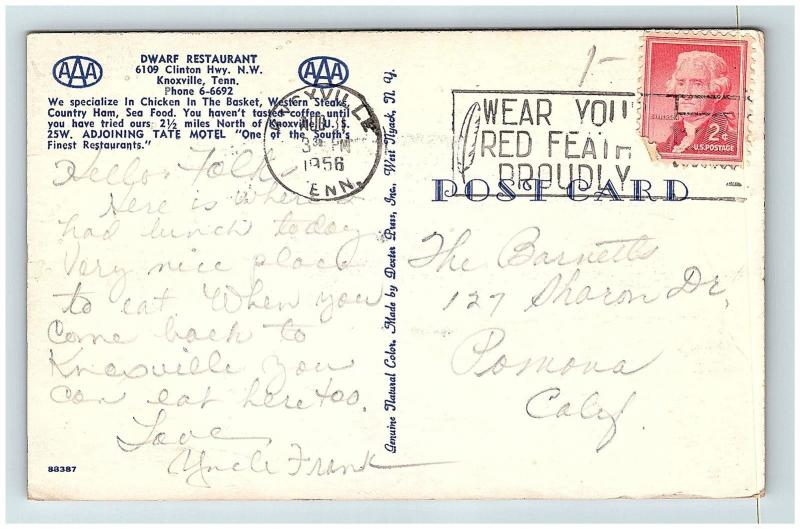 AAA
AAA
DWARF RESTAURANT
6109 Clinton Hwy. N.W.
Knoxville, Tenn.
Phone 6-6692
We specialize In Chicken In The Basket, Western Steaks,
Country Ham, Sea Food. You haven't tasted coffee until
you have tried ours. 2½ miles North of Knoxville, U. S.
25W. ADJOINING TATE MOTEL "One of the South's
Finest Restaurants."
Hello Folks
Here is where I
had lunch today
Very nice place
to eat When you
come back to
Knoxville you
can eat here too.
Love
Uncle Frank
88387
Genuine Natural Color, Made by Dexter Press, Inc., West Nyack, N. Y.
KNOXVILLE
3 PM
1956
TENN.
1-
WEAR YOU
RED FEATH
PROUDLY
2¢
U.S. POSTAGE
POST CARD
The Barnetts
127 Sharon Dr.
Pomona
Calif.